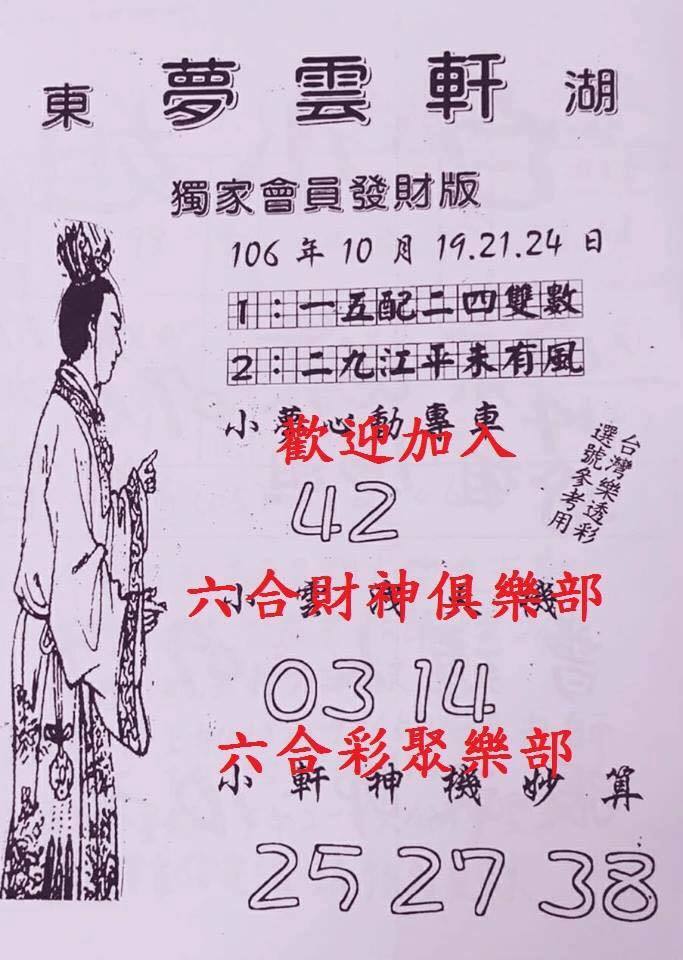 東 夢 雲 軒 湖
獨家會員發財版
106 年 10 月 19.21.24 日
1：一五配二四雙數
2：二九江平未有風
小夢心動專車
歡迎加入
台灣樂透彩
選號參考用
42
小雲 機
六合財神俱樂部
03 14
六合彩聚樂部
小軒神機妙算
25 27 38